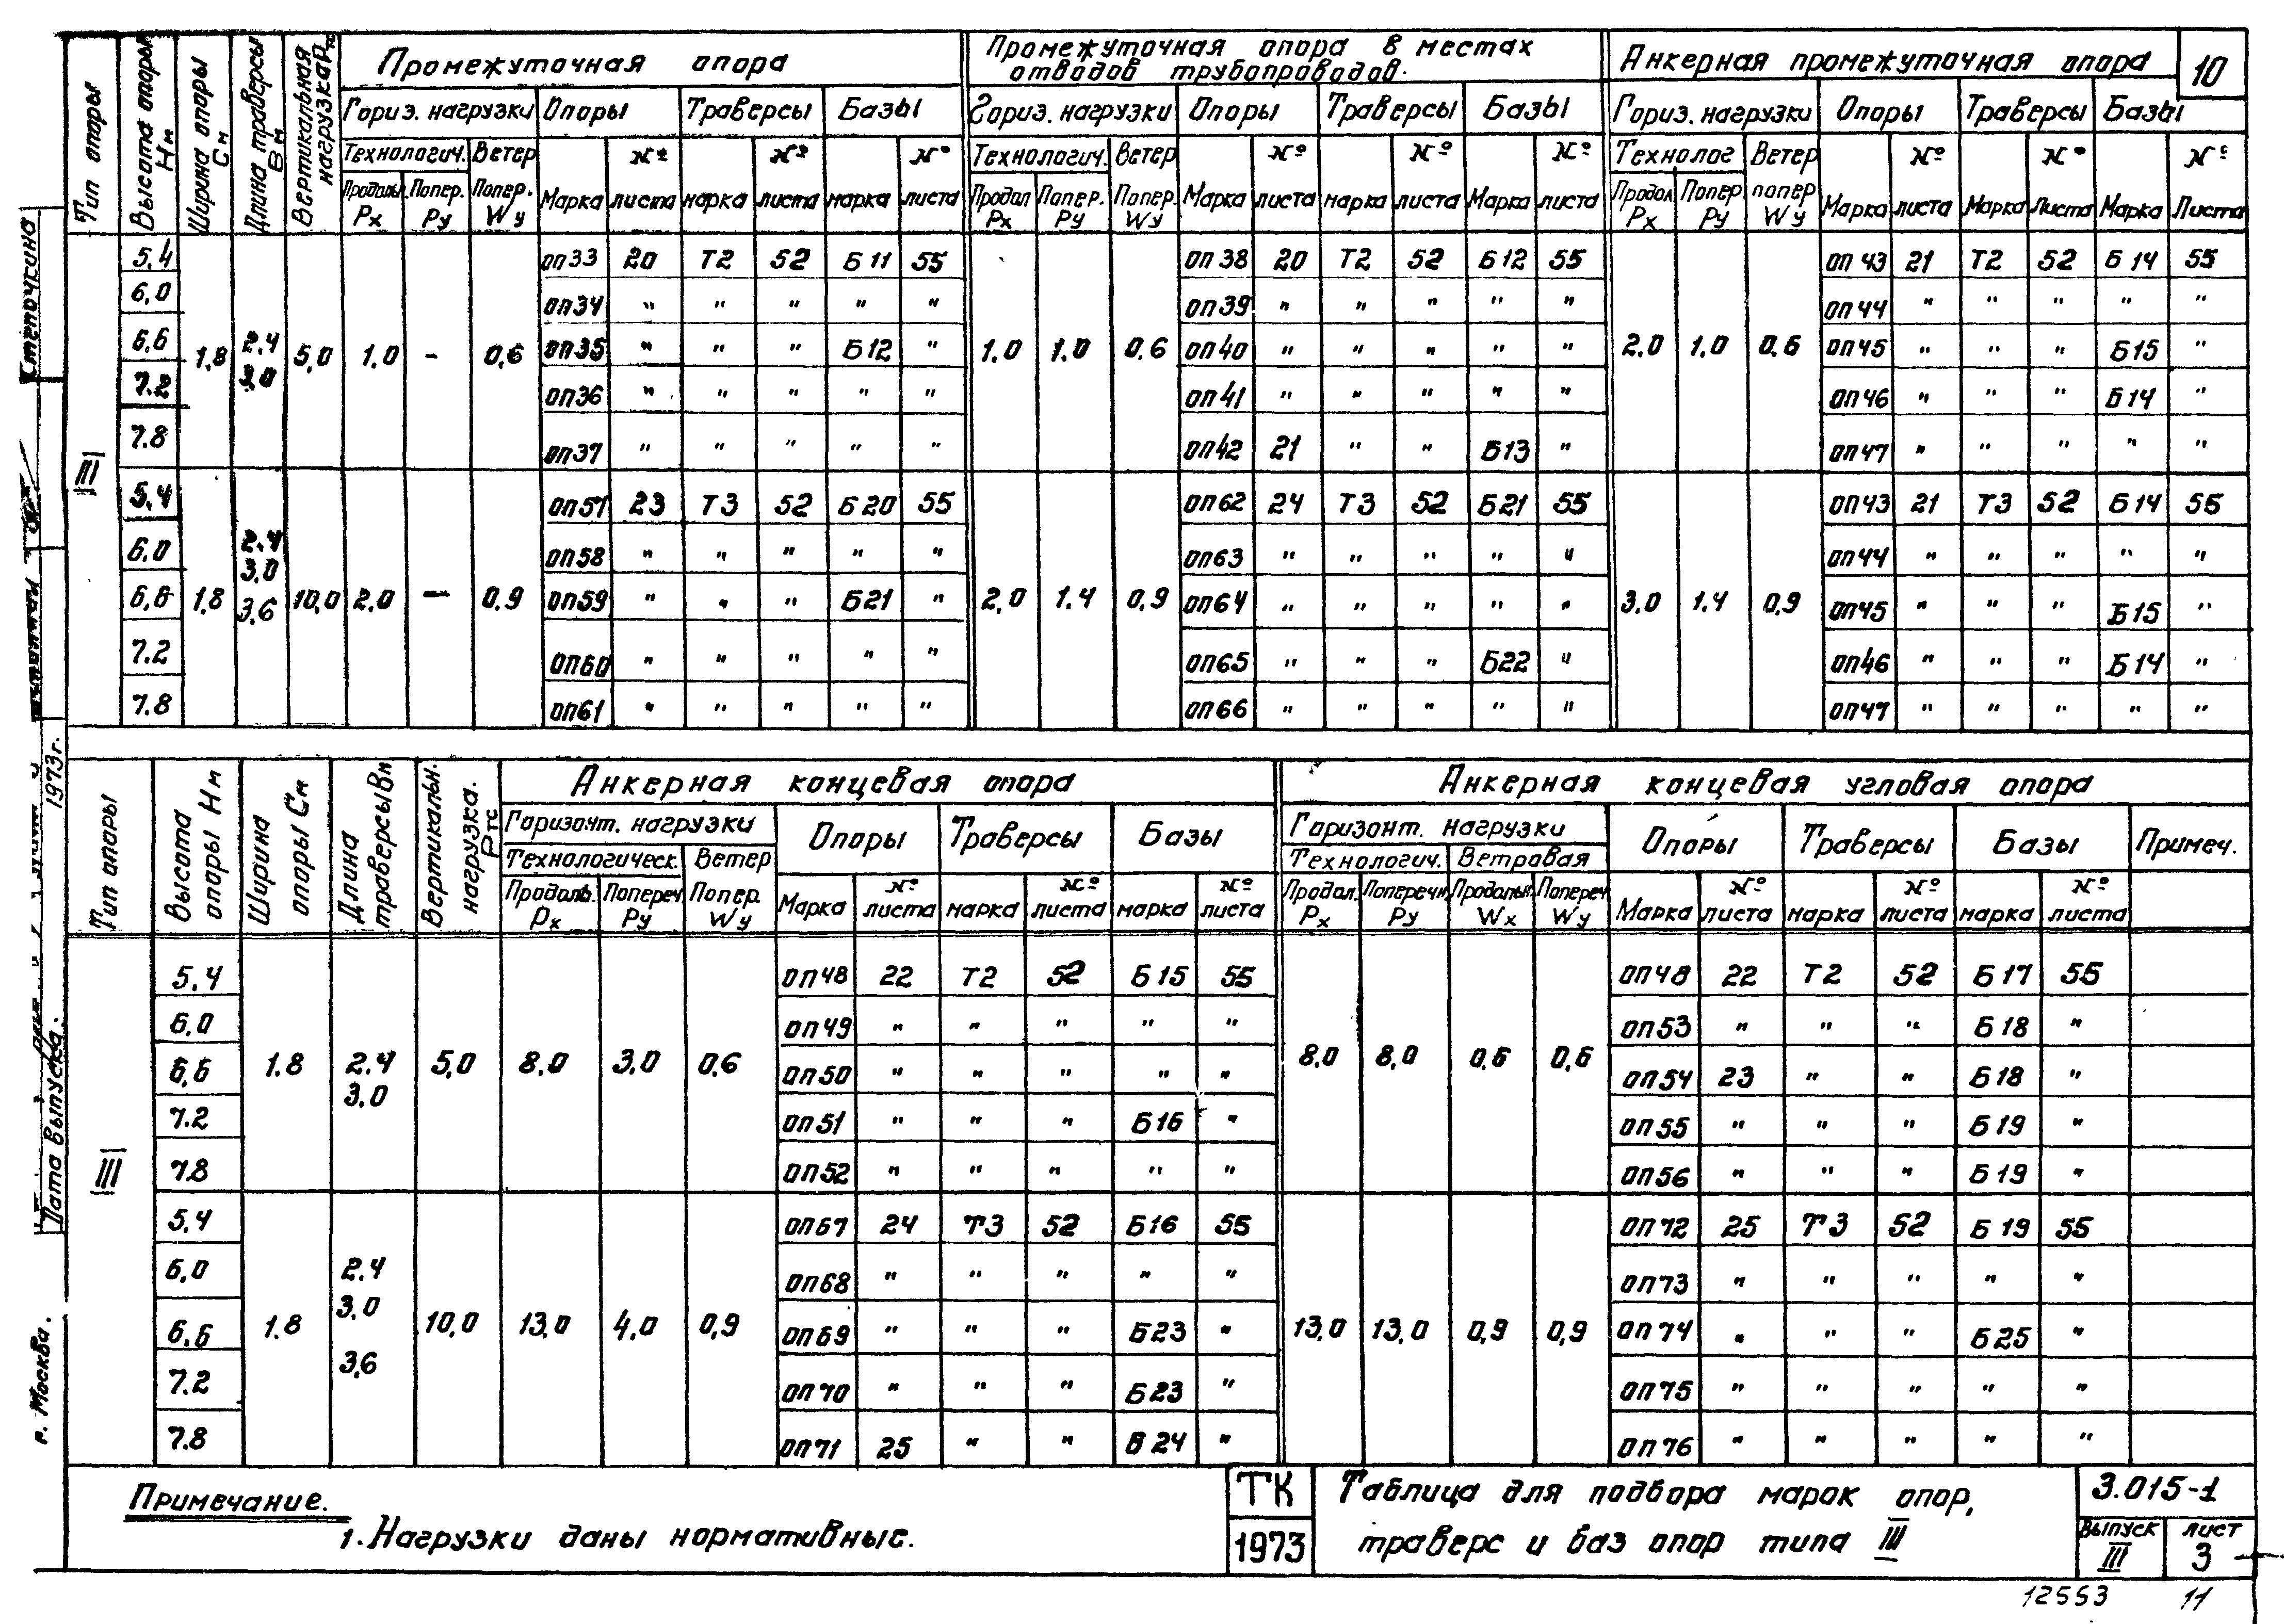 10
Тип опоры | Высота опоры Нм | Ширина опоры См | Длина траверсы Вм | Вертикальная нагрузка Ртс | Промежуточная опора | Промежуточная опора в местах отводов трубопроводов. | Анкерная промежуточная опора
Гориз. нагрузки | Опоры | Траверсы | Базы | Гориз. нагрузки | Опоры | Траверсы | Базы | Гориз. нагрузки | Опоры | Траверсы | Базы
Технологич. | Ветер | № | № | № | Технологич. | Ветер | № | № | № | Технолог | Ветер | № | № | №
Продольн Рх | Попер. Ру | Попер. Wу | Марка | листа | марка | листа | марка | листа | Продол Рх | Попер. Ру | Попер. Wу | Марка | листа | марка | листа | Марка | листа | Продол. Рх | Попер Ру | попер Wу | Марка | листа | Марка | Листа | Марка | Листа
III
5,4 | оп33 | 20 | Т2 | 52 | Б11 | 55 | оп38 | 20 | Т2 | 52 | Б12 | 55 | оп43 | 21 | Т2 | 52 | Б14 | 55
6,0 | оп34 | " | " | " | " | " | оп39 | " | " | " | " | " | оп44 | " | " | " | " | "
6,6 | 1,8 | 2,4 3,0 | 5,0 | 1,0 | – | 0,6 | оп35 | " | " | " | Б12 | " | 1,0 | 1,0 | 0,6 | оп40 | " | " | " | " | " | 2,0 | 1,0 | 0,6 | оп45 | " | " | " | Б15 | "
7.2 | оп36 | " | " | " | " | " | оп41 | " | " | " | " | " | оп46 | " | " | " | Б14 | "
7.8 | оп37 | " | " | " | " | " | оп42 | 21 | " | " | Б13 | " | оп47 | " | " | " | " | "
5,4 | оп57 | 23 | Т3 | 52 | Б20 | 55 | оп62 | 24 | Т3 | 52 | Б21 | 55 | оп43 | 21 | Т3 | 52 | Б14 | 55
6,0 | оп58 | " | " | " | " | " | оп63 | " | " | " | " | " | оп44 | " | " | " | " | "
6,6 | 1,8 | 2,4 3,0 3,6 | 10,0 | 2,0 | – | 0,9 | оп59 | " | " | " | Б21 | " | 2,0 | 1,4 | 0,9 | оп64 | " | " | " | " | " | 3,0 | 1,4 | 0,9 | оп45 | " | " | " | Б15 | "
7.2 | оп60 | " | " | " | " | " | оп65 | " | " | " | Б22 | " | оп46 | " | " | " | Б14 | "
7.8 | оп61 | " | " | " | " | " | оп66 | " | " | " | " | " | оп47 | " | " | " | " | "
Тип опоры | Высота опоры Нм | Ширина опоры См | Длина траверсы Вм | Вертикальн. нагрузка. Ртс | Анкерная концевая опора | Анкерная концевая угловая опора
Горизонт. нагрузки | Опоры | Траверсы | Базы | Горизонт. нагрузки | Опоры | Траверсы | Базы | Примеч.
Технологическ. | Ветер | № | № | № | Технологич. | Ветровая | № | № | №
Продоль. Рх | Попереч Ру | Попер. Wу | Марка | листа | марка | листа | марка | листа | Продол. Рх | Поперечн Ру | Продольн Wх | Попереч Wу | Марка | листа | марка | листа | марка | листа
III
5,4 | оп48 | 22 | Т2 | 52 | Б15 | 55 | оп48 | 22 | Т2 | 52 | Б17 | 55
6,0 | оп49 | " | " | " | " | " | оп53 | " | " | " | Б18 | "
6,6 | 1.8 | 2.4 3,0 | 5,0 | 8,0 | 3,0 | 0,6 | оп50 | " | " | " | " | " | 8,0 | 8,0 | 0,6 | 0,6 | оп54 | 23 | " | " | Б18 | "
7.2 | оп51 | " | " | " | Б16 | " | оп55 | " | " | " | Б19 | "
7.8 | оп52 | " | " | " | " | " | оп56 | " | " | " | Б19 | "
5,4 | оп67 | 24 | Т3 | 52 | Б16 | 55 | оп72 | 25 | Т3 | 52 | Б19 | 55
6,0 | оп68 | " | " | " | " | " | оп73 | " | " | " | " | "
6,6 | 1.8 | 2.4 3,0 3,6 | 10,0 | 13,0 | 4,0 | 0,9 | оп69 | " | " | " | Б23 | " | 13,0 | 13,0 | 0,9 | 0,9 | оп74 | " | " | " | Б25 | "
7.2 | оп70 | " | " | " | Б23 | " | оп75 | " | " | " | " | "
7.8 | оп71 | 25 | " | " | В24 | " | оп76 | " | " | " | " | "
Примечание.
1. Нагрузки даны нормативные.
ТК
1973
Таблица для подбора марок опор,
траверс и баз опор типа III
3.015-1
Выпуск III
лист 3
12553 11
Степочкина
Дата выпуска: 1973г.
г. Москва.